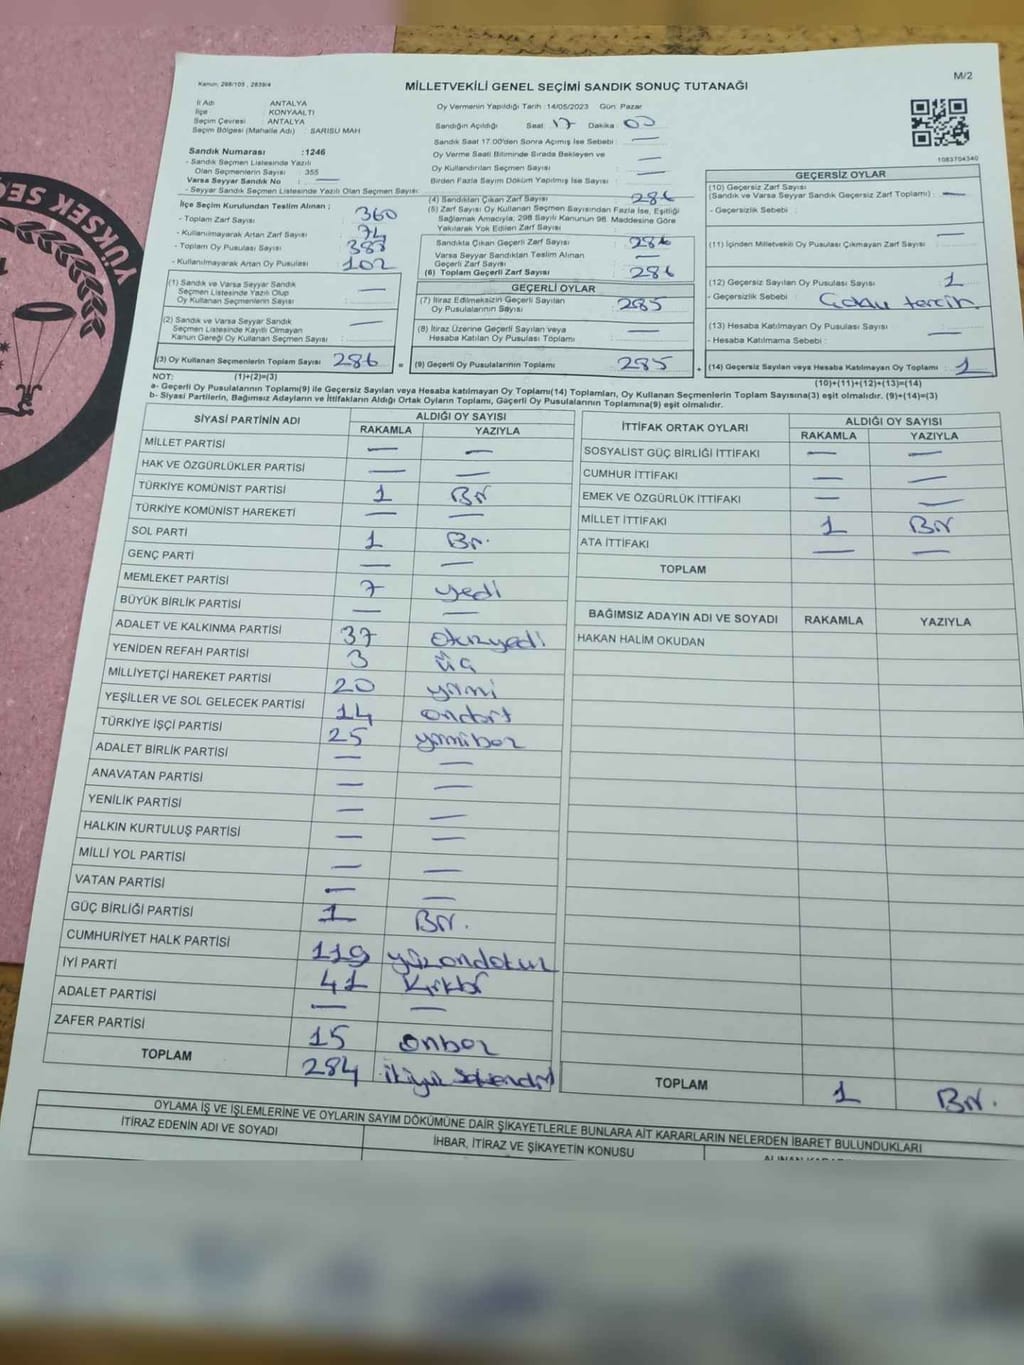 YÜKSEK SEÇ
Kanun: 298/105, 2839/4
MİLLETVEKİLİ GENEL SEÇİMİ SANDIK SONUÇ TUTANAĞI
M/2
İl Adı ANTALYA
İlçe KONYAALTI
Seçim Çevresi ANTALYA
Seçim Bölgesi (Mahalle Adı) : SARISU MAH
Oy Vermenin Yapıldığı Tarih :14/05/2023 Gün: Pazar
Sandığın Açıldığı Saat: 17 Dakika: 00
Sandık Saat 17.00'den Sonra Açımış İse Sebebi : —
Oy Verme Saati Bitiminde Sırada Bekleyen ve
Oy Kullandırılan Seçmen Sayısı : —
Birden Fazla Sayım Döküm Yapılmış İse Sayısı : —
1083704340
Sandık Numarası :1246
- Sandık Seçmen Listesinde Yazılı
Olan Seçmenlerin Sayısı : 355
Varsa Seyyar Sandık No : —
- Seyyar Sandık Seçmen Listesinde Yazılı Olan Seçmen Sayısı:
İlçe Seçim Kurulundan Teslim Alınan ;
- Toplam Zarf Sayısı : 360
- Kullanılmayarak Artan Zarf Sayısı : 74
- Toplam Oy Pusulası Sayısı : 388
- Kullanılmayarak Artan Oy Pusulası : 102
(1) Sandık ve Varsa Seyyar Sandık
Seçmen Listesinde Yazılı Olup
Oy Kullanan Seçmenlerin Sayısı : —
(2) Sandık ve Varsa Seyyar Sandık
Seçmen Listesinde Kayıtlı Olmayan
Kanun Gereği Oy Kullanan Seçmen Sayısı : —
(3) Oy Kullanan Seçmenlerin Toplam Sayısı : 286
(4) Sandıktan Çıkan Zarf Sayısı : 286
(5) Zarf Sayısı Oy Kullanan Seçmen Sayısından Fazla İse, Eşitliği
Sağlamak Amacıyla; 298 Sayılı Kanunun 98. Maddesine Göre
Yakılarak Yok Edilen Zarf Sayısı :
Sandıkta Çıkan Geçerli Zarf Sayısı : 286
Varsa Seyyar Sandıktan Teslim Alınan
Geçerli Zarf Sayısı : —
(6) Toplam Geçerli Zarf Sayısı : 286
GEÇERLİ OYLAR
(7) İtiraz Edilmeksizin Geçerli Sayılan
Oy Pusulalarının Sayısı : 285
(8) İtiraz Üzerine Geçerli Sayılan veya
Hesaba Katılan Oy Pusulası Toplamı : —
= (9) Geçerli Oy Pusulalarının Toplamı : 285 +
GEÇERSİZ OYLAR
(10) Geçersiz Zarf Sayısı
(Sandık ve Varsa Sandık Geçersiz Zarf Toplamı) : —
- Geçersizlik Sebebi :
(11) İçinden Milletvekili Oy Pusulası Çıkmayan Zarf Sayısı : —
(12) Geçersiz Sayılan Oy Pusulası Sayısı : 1
- Geçersizlik Sebebi : tercih
(13) Hesaba Katılmayan Oy Pusulası Sayısı :
- Hesaba Katılmama Sebebi : —
(14) Geçersiz Sayılan veya Hesaba Katılmayan Oy Toplamı : 1
NOT: (1)+(2)=(3)
(10)+(11)+(12)+(13)=(14)
a- Geçerli Oy Pusulalarının Toplamı(9) ile Geçersiz Sayılan veya Hesaba katılmayan Oy Toplamı(14) Toplamları, Oy Kullanan Seçmenlerin Toplam Sayısına(3) eşit olmalıdır. (9)+(14)=(3)
b- Siyasi Partilerin, Bağımsız Adayların ve İttifakların Aldığı Ortak Oyların Toplamı, Güçerli Oy Pusulalarının Toplamına(9) eşit olmalıdır.
SİYASİ PARTİNİN ADI ALDIĞI OY SAYISI
RAKAMLA YAZIYLA
MİLLET PARTİSİ — —
HAK VE ÖZGÜRLÜKLER PARTİSİ — —
TÜRKİYE KOMÜNİST PARTİSİ 1 Bir
TÜRKİYE KOMÜNİST HAREKETİ — —
SOL PARTİ 1 Bir.
GENÇ PARTİ — —
MEMLEKET PARTİSİ 7 yedi
BÜYÜK BİRLİK PARTİSİ — —
ADALET VE KALKINMA PARTİSİ 37 otuzyedi
YENİDEN REFAH PARTİSİ 3 üç
MİLLİYETÇİ HAREKET PARTİSİ 20 yirmi
YEŞİLLER VE SOL GELECEK PARTİSİ 14 ondört
TÜRKİYE İŞÇİ PARTİSİ 25 yirmibeş
ADALET BİRLİK PARTİSİ — —
ANAVATAN PARTİSİ — —
YENİLİK PARTİSİ — —
HALKIN KURTULUŞ PARTİSİ — —
MİLLİ YOL PARTİSİ — —
VATAN PARTİSİ — —
GÜÇ BİRLİĞİ PARTİSİ 1 Bir.
CUMHURİYET HALK PARTİSİ 119 yüzondokuz
İYİ PARTİ 41 Kırkbir
ADALET PARTİSİ — —
ZAFER PARTİSİ 15 onbeş
TOPLAM 284 ikiyüz seksendört
İTTİFAK ORTAK OYLARI ALDIĞI OY SAYISI
RAKAMLA YAZIYLA
SOSYALİST GÜÇ BİRLİĞİ İTTİFAKI — —
CUMHUR İTTİFAKI — —
EMEK VE ÖZGÜRLÜK İTTİFAKI — —
MİLLET İTTİFAKI 1 Bir
ATA İTTİFAKI — —
TOPLAM
BAĞIMSIZ ADAYIN ADI VE SOYADI RAKAMLA YAZIYLA
HAKAN HALİM OKUDAN
TOPLAM 1 Bir.
OYLAMA İŞ VE İŞLEMLERİNE VE OYLARIN SAYIM DÖKÜMÜNE DAİR ŞİKAYETLERLE BUNLARA AİT KARARLARIN NELERDEN İBARET BULUNDUKLARI
İTİRAZ EDENİN ADI VE SOYADI İHBAR, İTİRAZ VE ŞİKAYETİN KONUSU